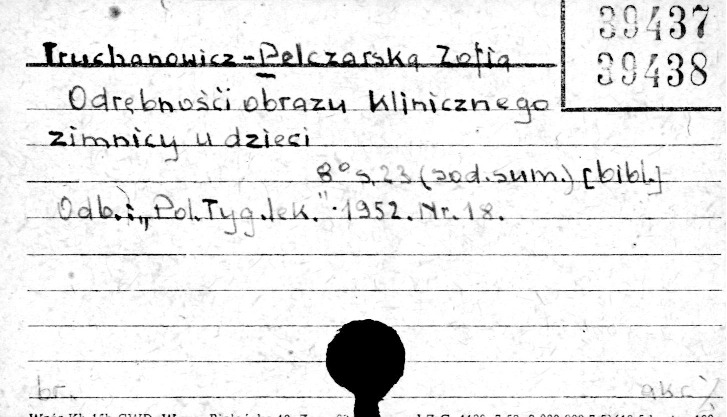 39437
39438
Truchanowicz-Pelczarska Zofia
Odrębności obrazu klinicznego
zimnicy u dzieci
8° s. 23 (sod. sum.) [bibl.]
Odb.: „Pol. Tyg. lek." 1952. Nr. 18.
br.
akc